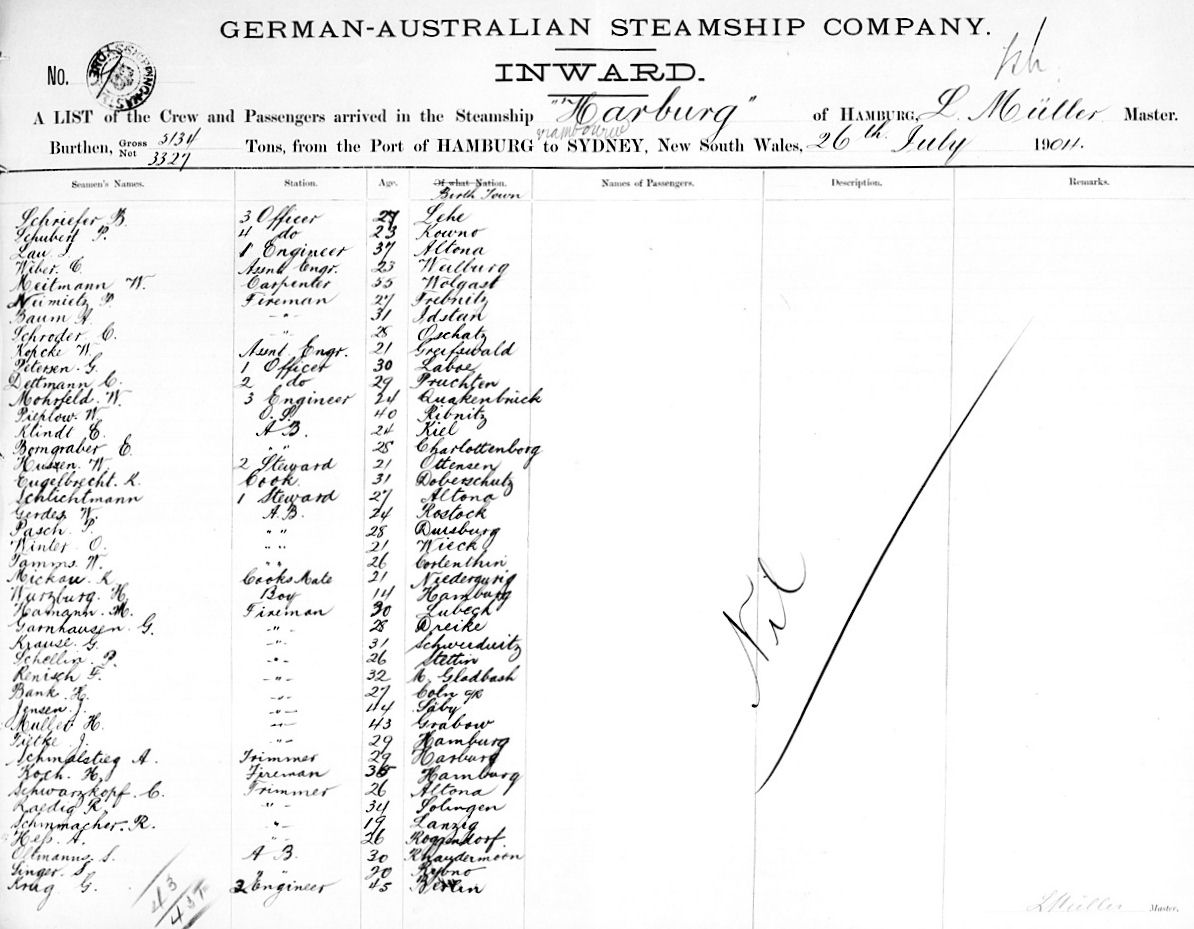 GERMAN-AUSTRALIAN STEAMSHIP COMPANY.
INWARD.
No.
A LIST of the Crew and Passengers arrived in the Steamship "Harburg" of HAMBURG, L. Müller Master.
Burthen, Gross 5134 Net 3327 Tons, from the Port of HAMBURG to SYDNEY, New South Wales, 26th July 1904.
Seamen's Names. Station. Age. Of what Nation. Names of Passengers. Description. Remarks.
Birth Town
Schriefer B. 3 Officer 27 Lehe
Schubert P. 4 do 23 Kowno
Lau. J. 1 Engineer 37 Altona
Wiber. E. Assnt Engr. 23 Weilburg
Meitmann W. Carpenter 55 Wolgast
Neimietz P. Fireman 27 Trebnitz
Baum A. -"- 31 Idstein
Schroder C. -"- 28 Oschatz
Kopcke W. Assnt. Engr. 21 Greifswald
Petersen. G. 1 Officer 30 Laboe
Dettmann C. 2 do 29 Pruchten
Mohrfeld. W. 3 Engineer 24 Quakenbrück
Pieplow. W. O.S. 40 Ribnitz
Klindt E. A B. 24 Kiel
Borngraber E. " " 28 Charlottenborg
Hussen. W. 2 Steward 21 Ottensen
Engelbrecht. K. Cook 31 Doberschutz
Schlichtmann 1 Steward 27 Altona
Gerdes W. A.B. 24 Rostock
Pasch. P. " " 28 Duisburg
Winter O. " " 21 Wieck
Tamms. W. " " 26
Mickau. K Cooks Mate 21 Niedergurig
Wurzburg. H. Boy 14 Hamburg
Hamann. M. Fireman 30 Lubeck
Garnhausen. G. -"- 28 Dreike
Krause. G. -"- 31
Schellin. P. -"- 26 Stettin
Renisch F. -"- 32 M. Gladbach
Bank H. -"- 27 Coln
Jensen. J. -"- 44 Saby
Muller H. -"- 43 Grabow
Tietke J. -"- 29 Hamburg
Schmalstieg A. Trimmer 29 Harburg
Koch. H. Fireman 35 Hamburg
Schwarzkopf. C. Trimmer 26 Altona
Raedig R. -"- 34 Solingen
Schumacher. R. -"- 19 Lanzig
Hess. A. -"- 26 Roggendorf.
Oltmanns. S. A B. 30 Rhaudermoon
Singer. S. " 20 Rybno
Krug G. 2 Engineer 45 Berlin
Nil
43
L Müller Master.